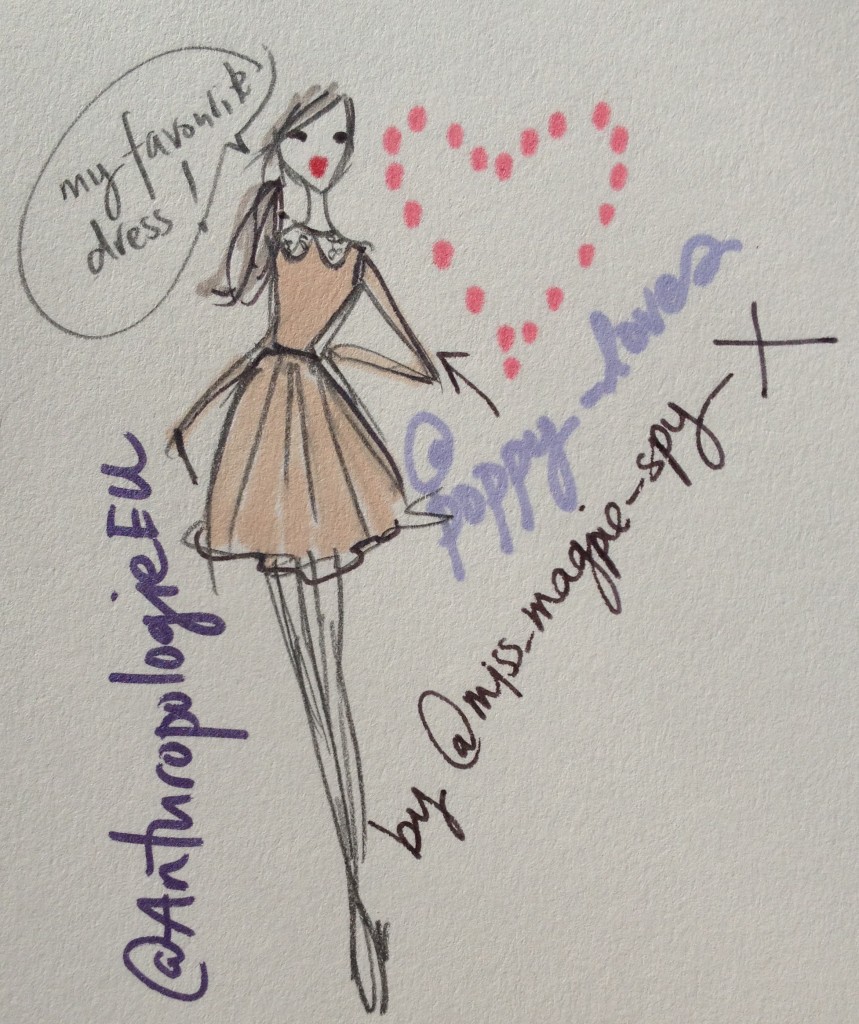 my favourite
dress!
@poppy_loves
by @miss_magpie_spy
@AnthropologieEU